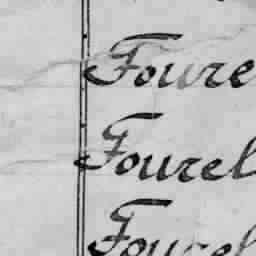 Foure
Fourel
Fourel